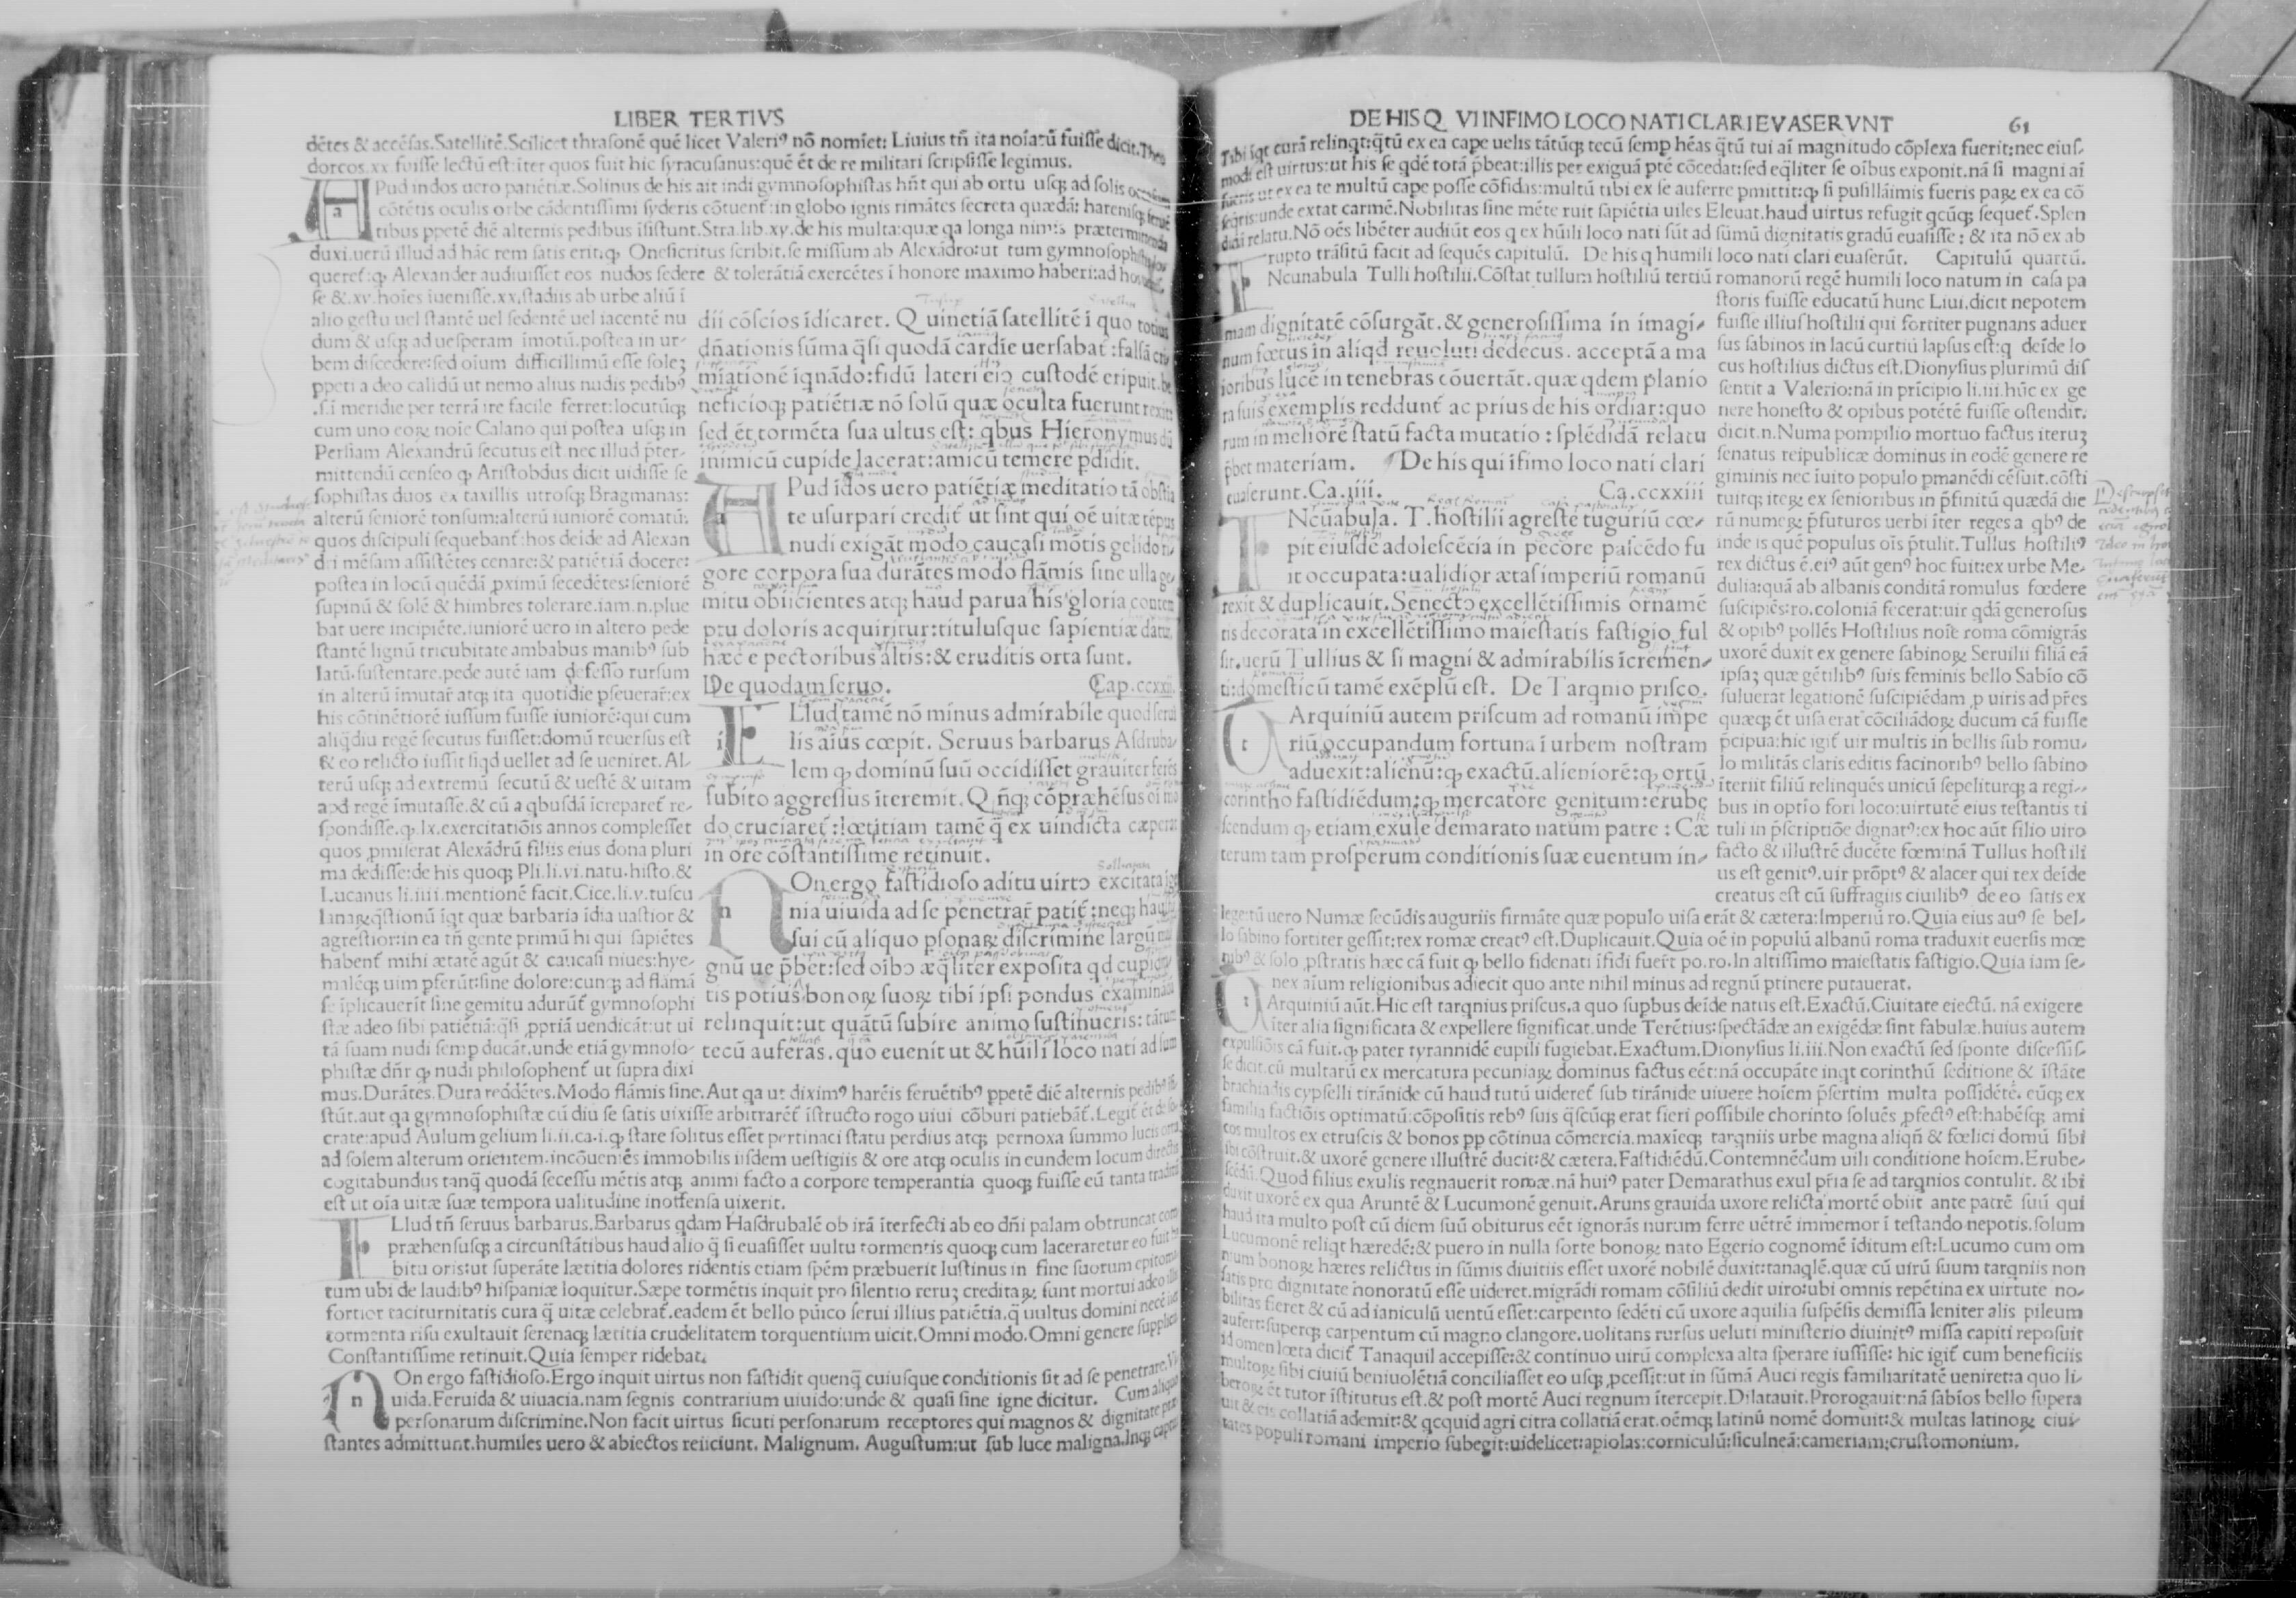 LIBER TERTIVS
dētes & accēsas.Satellitē.Scilicet thrasonē quē licet Valeri⁹ nō nomīet: Liuius tñ ita noīatū fuisse dicit.Theo
dorcos.xx fuisse lectū est:iter quos fuit hic syracusanus:quē ēt de re militari scripsisse legimus.
APud indos uero patiētiæ.Solinus de his ait indi gymnosophistas hñt qui ab ortu usqꝫ ad solis
cōtētis oculis orbe cādentissimi syderis cōtuent̄:in globo ignis rimātes secreta quædā: harenisqꝫ ferue
tibus ppetē diē alternis pedibus īsistunt.Stra.lib.xv.de his multa:quæ qa longa nimis prætermittenda
duxi.uerū illud ad hāc rem satis erit:ꝙ Onesicritus scribit.se missum ab Alexādro:ut tum gymnosophistas
queret̄:ꝙ Alexander audiuisset eos nudos sedere & tolerātiā exercētes ī honore maximo haberi:ad hos
se &.xv.hoīes iuenisse.xx.stadiis ab urbe aliū ī
alio gestu uel stantē uel sedentē uel iacentē nu
dum & usqꝫ ad uesperam īmotū.postea in ur-
bem discedere:sed oīum difficillimū esse soleꝫ
ppeti a deo calidū ut nemo alius nudis pedib⁹
.s.ī meridie per terrā ire facile ferret:locutūqꝫ
cum uno eoꝝ noīe Calano qui postea usqꝫ in
Persiam Alexandrū secutus est nec illud p̄ter-
mittendū censeo ꝙ Aristobdus dicit uidisse se
sophistas duos ex taxillis utrosqꝫ Bragmanas:
alterū seniorē tonsum:alterū iuniorē comatū:
quos discipuli sequebant̄:hos deide ad Alexan
dri mēsam assistētes cenare:& patiētiā docere:
postea in locū quēdā ꝓximū secedētes:seniorē
supinū & solē & himbres tolerare.iam.n.plue
bat uere incipiēte.iuniorē uero in altero pede
stantē lignū tricubitate ambabus manib⁹ sub
latū.sustentare.pede autē iam defesso rursum
in alterū īmutar̄ atqꝫ ita quotidie pseuerar̄:ex
his cōtinētiorē iussum fuisse iuniorē:qui cum
aliq̄diu regē secutus fuisset:domū reuersus est
& eo relicto iussit siqd uellet ad se ueniret.Al-
terū usqꝫ ad extremū secutū & uestē & uitam
apd regē īmutasse.& cū a qbusdā īcreparet̄ re-
spondisse.ꝙ.lx.exercitatiōis annos complesset
quos ꝓmiserat Alexādrū filiis eius dona pluri
ma dedisse:de his quoqꝫ Pli.li.vi.natu.histo.&
Lucanus li.iiii.mentionē facit.Cice.li.v.tuscu
lanaꝝ q̄stionū īqt quæ barbaria īdia uastior &
agrestior:in ea tñ gente primū hi qui sapiētes
habent̄ mihi ætatē agūt & caucasi niues:hye-
malēqꝫ uim pferūt:sine dolore:cunqꝫ ad flāmā
se īplicauerīt sine gemitu adurūt̄ gymnosophi
stæ adeo sibi patiētiā:q̄si ꝓpriā uendicāt:ut ui
tā suam nudi semp ducāt.unde etiā gymnoso-
phistæ dñr ꝙ nudi philosophent̄ ut supra dixi
dii cōscios īdicaret. Quinetiā satellitē ī quo totius
dñationis sūma q̄si quodā cardie uersabat̄:falsā cri
miationē iqnādo:fidū lateri eiꝰ custodē eripuit.be
neficioqꝫ patiētiæ nō solū quæ oculta fuerunt texit:
sed ēt tormēta sua ultus est: qbus Hieronymus dū
inimicū cupide lacerat:amicū temere pdidit.
APud īdos uero patiētiæ meditatio tā obstia
te usurpari credit̄ ut sint qui oē uitæ tēpus
nudi exigāt modo caucasi mōtis gelido ri-
gore corpora sua durātes modo flāmis sine ulla ge
mitu obiicientes atqꝫ haud parua his gloria contem
ptu doloris acquiritur:titulusque sapientiæ datur
hæc e pectoribus altis:& eruditis orta sunt.
De quodam seruo. Cap.ccxxii.
ILlud tamē nō minus admirabile quod serui
lis aīus cœpit. Seruus barbarus Asdruba-
lem ꝙ dominū suū occidisset grauiter ferēs
subito aggressus īteremit. Q ñqꝫ cōpræhēsus oī mo
do cruciaret̄:lætitiam tamē q̄ ex uindicta cæperat
in ore cōstantissime retinuit.
NOn ergo fastidioso aditu uirtꝰ excitata ige
nia uiuida ad se penetrar̄ patit̄:neqꝫ haustū
sui cū aliquo psonaꝝ discrimine largū mali
gnū ue p̄bet:sed oībꝰ æq̄liter exposita qd cupidi-
tis potius bonoꝝ suoꝝ tibi ipsi pondus examinādū
relinquit:ut quātū subire animo sustinueris:tātum
tecū auferas.quo euenit ut & hūili loco nati ad sum
mus.Durātes.Dura reddētes.Modo flāmis sine.Aut qa ut dixim⁹ harēis feruētib⁹ ppetē diē alternis pedib⁹ īsi
stūt.aut qa gymnosophistæ cū diu se satis uixisse arbitrarēt̄ īstructo rogo uiui cōburi patiebāt̄.Legit̄ ēt de so-
crate:apud Aulum gelium li.ii.ca.i.ꝙ stare solitus esset pertinaci statu perdius atqꝫ pernoxa summo lucis ortu
ad solem alterum orientem.incōueniēs immobilis iisdem uestigiis & ore atqꝫ oculis in eundem locum directis
cogitabundus tanq̄ quodā secessu mētis atqꝫ animi facto a corpore temperantia quoqꝫ fuisse eū tanta traditū
est ut oīa uitæ suæ tempora ualitudine inoffensa uixerit.
ILlud tñ seruus barbarus.Barbarus qdam Hasdrubalē ob irā īterfecti ab eo dñi palam obtruncat com
præhensusqꝫ a circunstātibus haud alio q̄ si euasisset uultu tormentis quoqꝫ cum laceraretur eo fuit ha
bitu oris:ut superāte lætitia dolores ridentis etiam spēm præbuerit Iustinus in fine suorum epitoma
tum ubi de laudib⁹ hispaniæ loquitur.Sæpe tormētis inquit pro silentio reruꝫ creditaꝝ. sunt mortui adeo illis
fortior taciturnitatis cura q̄ uitæ celebrat̄.eadem ēt bello pūico serui illius patiētia.q̄ uultus domini necē
tormenta risu exultauit serenaqꝫ lætitia crudelitatem torquentium uicit.Omni modo.Omni genere supplicii
Constantissime retinuit.Quia semper ridebat.
NOn ergo fastidioso.Ergo inquit uirtus non fastidit quenq̄ cuiusque conditionis sit ad se penetrare.Vi
uida.Feruida & uiuacia.nam segnis contrarium uiuido:unde & quasi sine igne dicitur. Cum aliquo
personarum discrimine.Non facit uirtus sicuti personarum receptores qui magnos & dignitate præ
stantes admittunt.humiles uero & abiectos reiiciunt. Malignum. Augustum:ut sub luce maligna.Inqꝫ captus
DE HIS QVI INFIMO LOCO NATI CLARI EVASERVNT 61
Tibi īqt curā relinqt:q̄tū ex ea cape uelis tātūqꝫ tecū semp hēas q̄tū tui aī magnitudo cōplexa fuerit:nec eius-
modi est uirtus:ut his se qdē totā p̄beat:illis per exiguā ptē cōcedat:sed eq̄liter se oībus exponit.nā si magni aī
fueris ut ex ea te multū cape posse cōfidas:multū tibi ex se auferre pmittit:ꝙ si pusillāimis fueris paꝝ ex ea cō
seq̄ris:unde extat carmē.Nobilitas sine mēte ruit sapiētia uiles Eleuat.haud uirtus refugit qcūqꝫ sequet̄.Splen
didā relatu.Nō oēs libēter audiūt eos q ex hūili loco nati sūt ad sūmū dignitatis gradū euasisse: & ita nō ex ab
rupto trāsitū facit ad sequēs capitulū. De his q humili loco nati clari euaserūt. Capitulū quartū.
INcunabula Tulli hostilii.Cōstat tullum hostiliū tertiū romanorū regē humili loco natum in casa pa
storis fuisse educatū hunc Liui.dicit nepotem
fuisse illius hostilii qui fortiter pugnans aduer
sus sabinos in lacū curtiū lapsus est:q deīde lo
cus hostilius dictus est.Dionysius plurimū dis
sentit a Valerio:nā in prīcipio li.iii.hūc ex ge
nere honesto & opibus potētē fuisse ostendit.
dicit.n.Numa pompilio mortuo factus iteruꝫ
senatus reipublicæ dominus in eodē genere re
giminis nec īuito populo pmanēdi cēsuit.cōsti
tuitqꝫ iteꝝ ex senioribus in p̄finitū quædā die
rū numeꝝ p̄futuros uerbi īter reges a qb⁹ de
inde is quē populus oīs p̄tulit.Tullus hostili⁹
rex dictus ē.ei⁹ aūt gen⁹ hoc fuit:ex urbe Me-
dulia:quā ab albanis conditā romulus fœdere
suscipiēs:ro.coloniā fecerat:uir qdā generosus
& opib⁹ pollēs Hostilius noīe roma cōmigrās
uxorē duxit ex genere sabinoꝝ Seruilii filiā eā
ipsaꝫ quæ gētilib⁹ suis feminis bello Sabio cō
suluerat legationē suscipiēdam ꝓ uiris ad pr̄es
quæqꝫ ēt uisa erat cōciliādoꝝ ducum cā fuisse
p̄cipua:hic igit̄ uir multis in bellis sub romu-
lo militās claris editis facinorib⁹ bello sabino
īteriit filiū relinquēs unicū sepeliturqꝫ a regi-
bus in optīo fori loco:uirtutē eius testantis ti
tuli in p̄scriptiōe dignat⁹:ex hoc aūt filio uiro
facto & illustrē ducēte fœminā Tullus hostili
us est genit⁹.uir prōpt⁹ & alacer qui rex deīde
creatus est cū suffragiis ciuilib⁹ de eo satis ex
mam dignitatē cōsurgāt.& generosissima in imagi-
num fœtus in aliqd reuoluti dedecus. acceptā a ma
ioribus lucē in tenebras cōuertāt.quæ qdem planio
ra suis exemplis reddunt̄ ac prius de his ordiar:quo
rum in meliorē statū facta mutatio : splēdidā relatu
p̄bet materiam. De his qui īfimo loco nati clari
euaserunt.Ca.iiii. Ca.ccxxiii
INcūabula. T.hostilii agreste tuguriū cœ-
pit eiusdē adolescēcia in pecore pascēdo fu
it occupata:ualidior ætas imperiū romanū
rexit & duplicauit.Senectꝰ excellētissimis ornamē
tis decorata in excellētissimo maiestatis fastigio ful
sit.uerū Tullius & si magni & admirabilis īcremen-
ti:domesticū tamē exēplū est. De Tarqnio prisco.
TArquiniū autem priscum ad romanū impe
riū occupandum fortuna ī urbem nostram
aduexit:alienū:ꝙ exactū.alieniorē:ꝙ ortū
corintho fastidiēdum:ꝙ mercatore genitum:erube
scendum ꝙ etiam exule demarato natum patre : Cæ
terum tam prosperum conditionis suæ euentum in-
lege:tū uero Numæ secūdis auguriis firmāte quæ populo uisa erāt & cætera:Imperiū ro.Quia eius au⁹ se bel-
lo sabino fortiter gessit:rex romæ creat⁹ est.Duplicauit.Quia oē in populū albanū roma traduxit euersis mœ
nib⁹ & solo ꝓstratis hæc cā fuit ꝙ bello fidenati īfidi fuer̄t po.ro.In altissimo maiestatis fastigio.Quia iam se-
nex aīum religionibus adiecit quo ante nihil minus ad regnū ptinere putauerat.
TArquiniū aūt.Hic est tarqnius priscus.a quo supbus deīde natus est.Exactū.Ciuitate eiectū. nā exigere
īter alia significata & expellere significat.unde Terētius:spectādæ an exigēdæ sint fabulæ.huius autem
expulsiōis cā fuit.ꝙ pater tyrannidē cupili fugiebat.Exactum.Dionysius li.iii.Non exactū sed sponte discessis-
se dicit.cū multarū ex mercatura pecuniaꝝ dominus factus eēt:nā occupāte inqt corinthū seditione & īstāte
brachiadis cypselli tirānide cū haud tutū uideret̄ sub tirānide uiuere hoīem p̄sertim multa possidētē. eūqꝫ ex
familia factiōis optimatū:cōpositis reb⁹ suis q̄scūqꝫ erat fieri possibile chorinto soluēs ꝓfect⁹ est:habēsqꝫ ami
cos multos ex etruscis & bonos pp cōtinua cōmercia.maxieqꝫ tarqniis urbe magna aliqñ & fœlici domū sibi
ibi cōstruit.& uxorē genere illustrē ducit:& cætera.Fastidiēdū.Contemnēdum uili conditione hoīem.Erube-
scēdū.Quod filius exulis regnauerit romæ.nā hui⁹ pater Demarathus exul pr̄ia se ad tarqnios contulit. & ibi
duxit uxorē ex qua Aruntē & Lucumonē genuit.Aruns grauida uxore relicta mortē obiit ante patrē suū qui
haud ita multo post cū diem suū obiturus eēt ignorās nurum ferre uētrē immemor ī testando nepotis.solum
Lucumonē reliqt hæredē:& puero in nulla sorte bonoꝝ nato Egerio cognomē īditum est:Lucumo cum om
nium bonoꝝ hæres relictus in sūmis diuitiis esset uxorē nobilē duxit:tanaqlē.quæ cū uirū suum tarqniis non
satis pro dignitate honoratū esse uideret.migrādi romam cōsiliū dedit uiro:ubi omnis repētina ex uirtute no-
bilitas fieret & cū ad ianiculū uentū esset:carpento sedēti cū uxore aquilia suspēsis demissa leniter alis pileum
aufert:superqꝫ carpentum cū magno clangore.uolitans rursus ueluti ministerio diuinit⁹ missa capiti reposuit
id omen læta dicit̄ Tanaquil accepisse:& continuo uirū complexa alta sperare iussisse: hic igit̄ cum beneficiis
multoꝝ sibi ciuiū beniuolētiā conciliasset eo usqꝫ ꝓcessit:ut in sūmā Auci regis familiaritatē ueniret:a quo li-
beroꝝ ēt tutor īstitutus est.& post mortē Auci regnum ītercepit.Dilatauit.Prorogauit:nā sabīos bello supera
uit & eis collatiā ademit:& qcquid agri citra collatiā erat.oēmqꝫ latinū nomē domuit:& multas latinoꝝ ciui-
tates populi romani imperio subegit:uidelicet:apiolas:corniculū:ficulneā:cameriam:crustomonium.